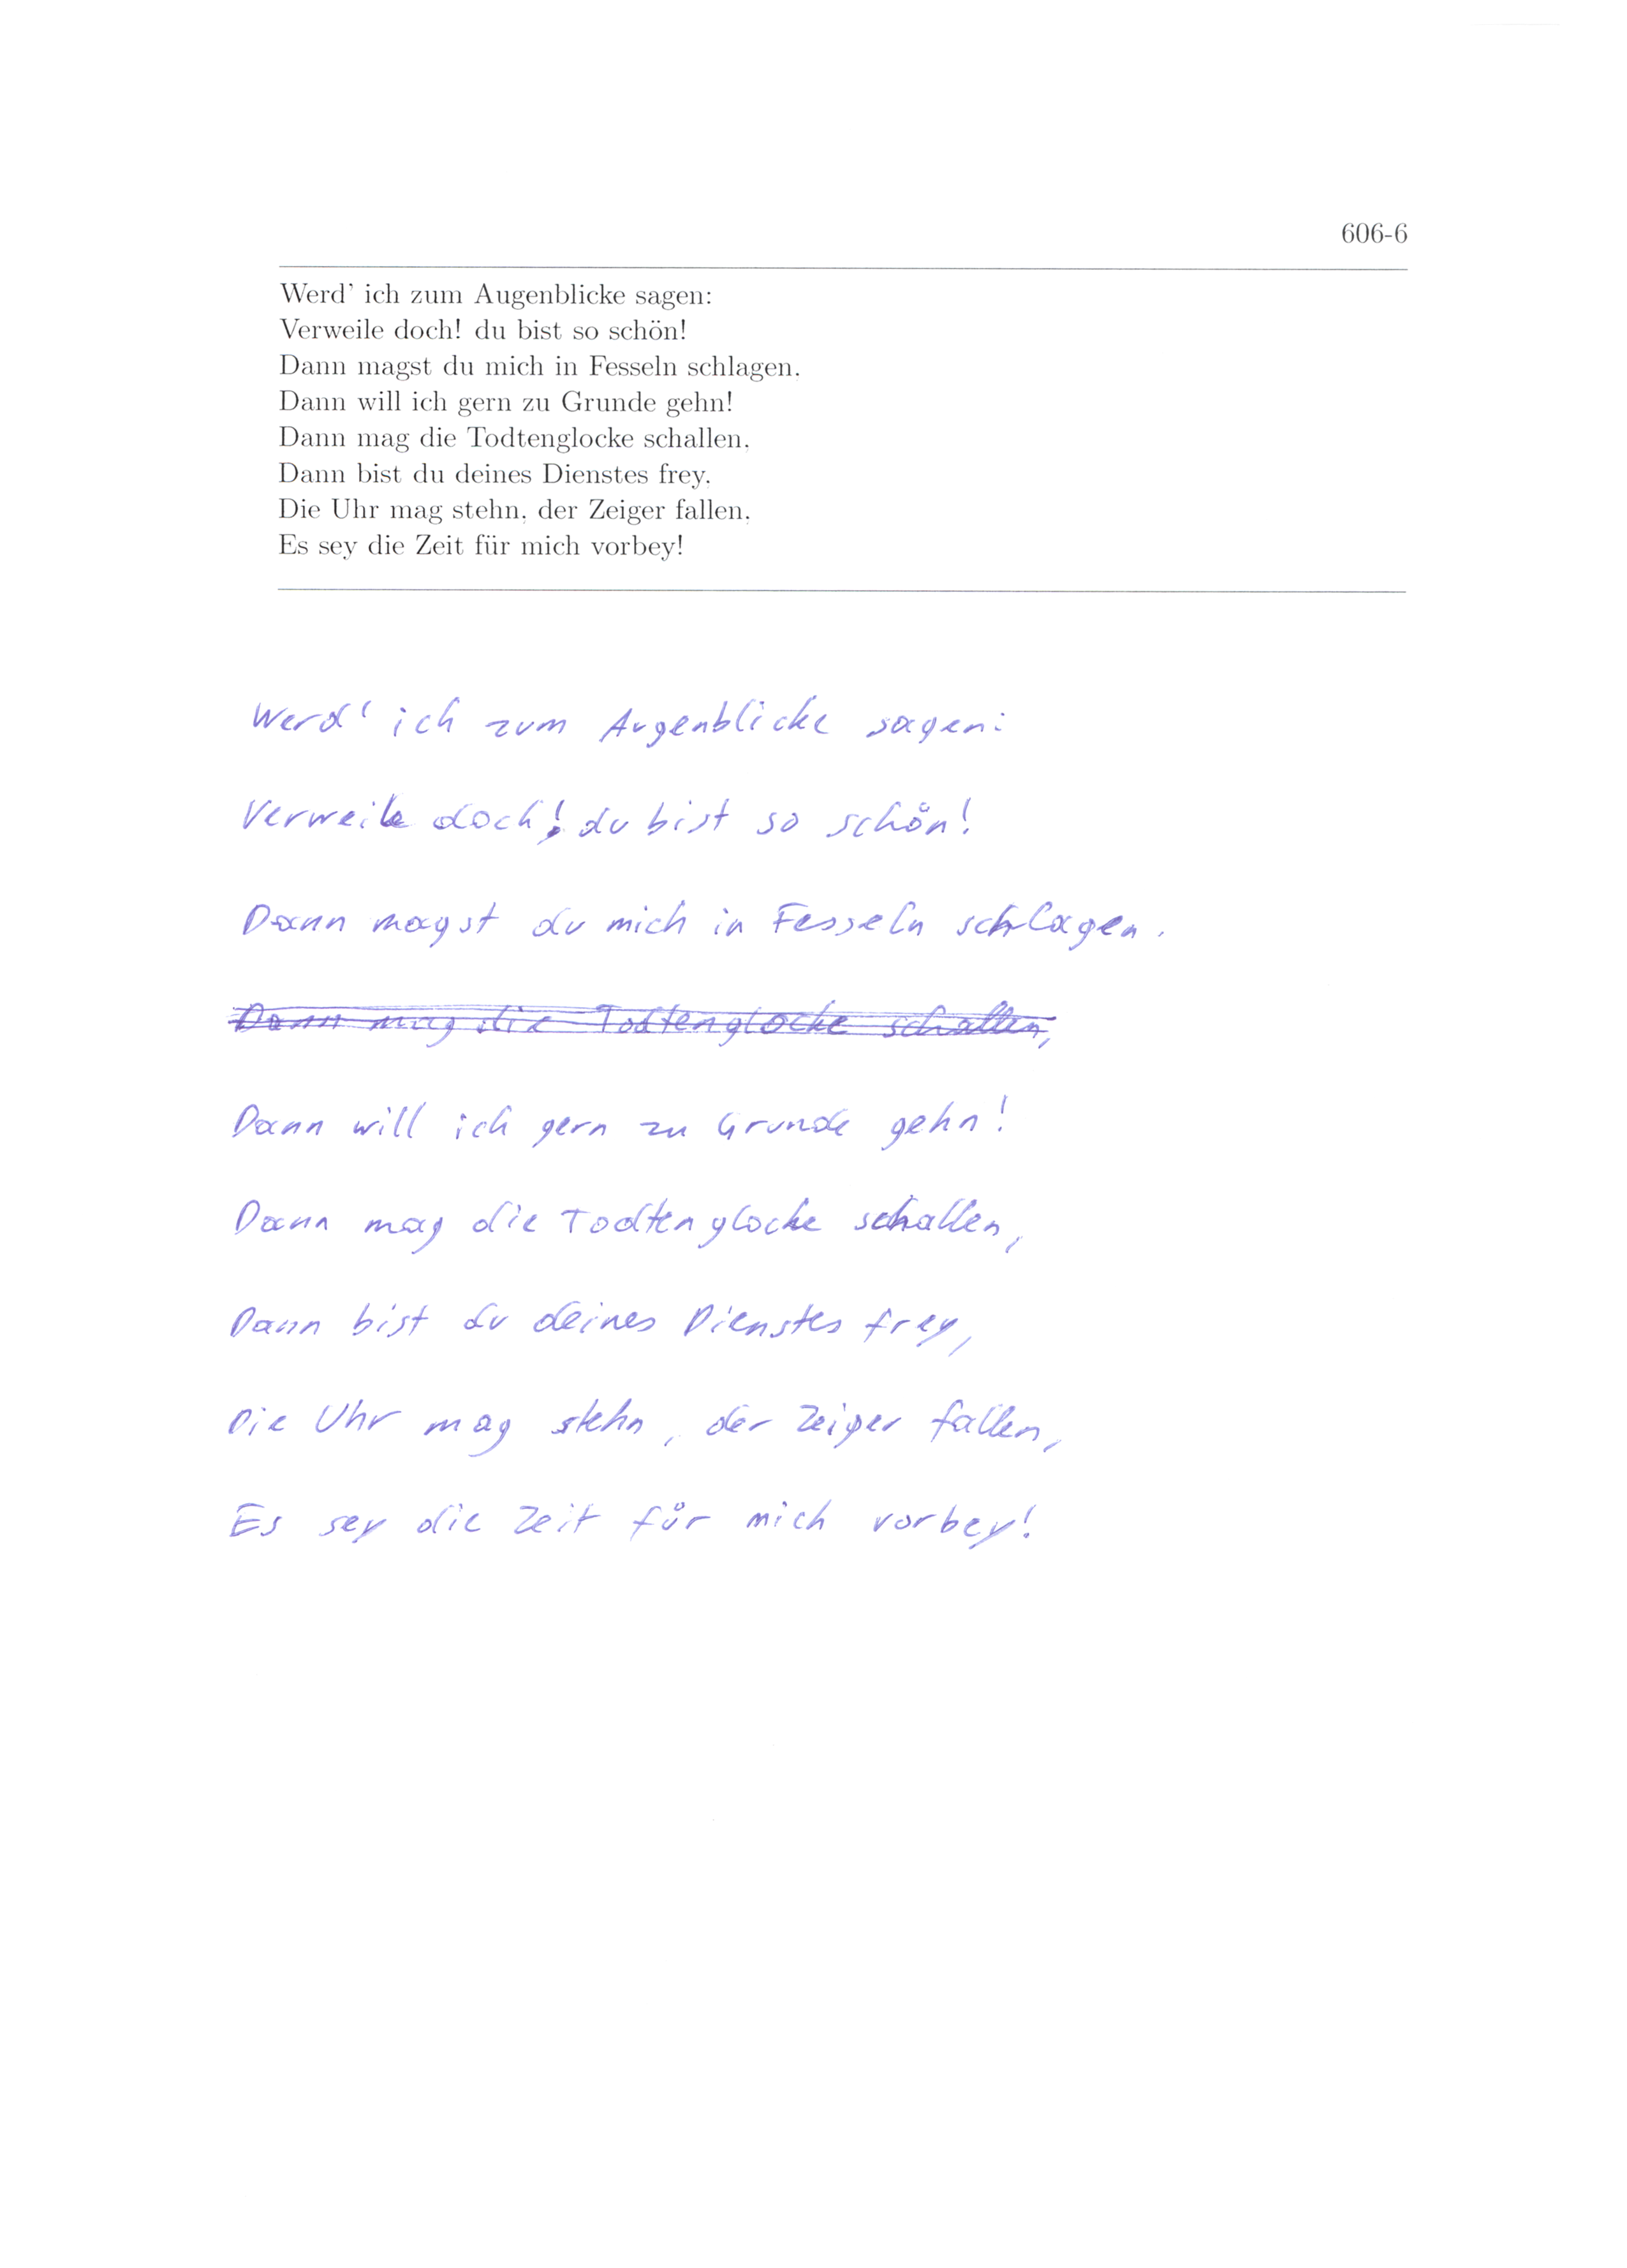 606-6
Werd' ich zum Augenblicke sagen:
Verweile doch! du bist so schön!
Dann magst du mich in Fesseln schlagen,
Dann will ich gern zu Grunde gehn!
Dann mag die Todtenglocke schallen,
Dann bist du deines Dienstes frey,
Die Uhr mag stehn, der Zeiger fallen,
Es sey die Zeit für mich vorbey!
Werd' ich zum Augenblicke sagen:
Verweile doch! du bist so schön!
Dann magst du mich in Fesseln schlagen.
Dann mag die Todtenglocke schallen,
Dann will ich gern zu Grunde gehn!
Dann mag die Todtenglocke schallen,
Dann bist du deines Dienstes frey,
Die Uhr mag stehn, der Zeiger fallen,
Es sey die Zeit für mich vorbey!